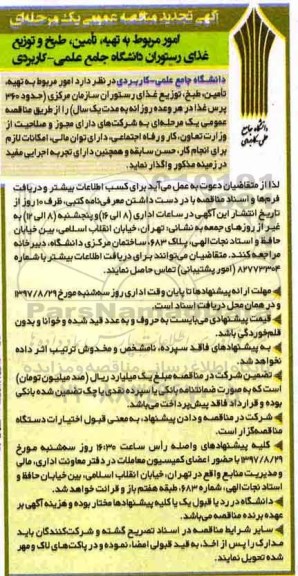 آگهی تجدید مناقصه عمومی یک مرحله‌ای
امور مربوط به تهیه، تأمین، طبخ و توزیع
غذای رستوران دانشگاه جامع علمی-کاربردی
دانشگاه جامع علمی-کاربردی در نظر دارد امور مربوط به تهیه،
تأمین، طبخ، توزیع غذای رستوران سازمان مرکزی (حدود ۳۴۰
پرس غذا در هر وعده روزانه به مدت یک سال) را از طریق مناقصه
عمومی یک مرحله‌ای به شرکت‌های دارای مجوز و صلاحیت از
وزارت تعاون، کار و رفاه اجتماعی، دارای توان مالی، امکانات لازم
برای انجام کار، حسن سابقه و همچنین دارای تجربه اجرایی مفید
در زمینه مذکور واگذار نماید.
دانشگاه جامع
علمی کاربردی
لذا از متقاضیان دعوت به عمل می‌آید برای کسب اطلاعات بیشتر و دریافت
فرم‌ها و اسناد مناقصه با در دست داشتن معرفی‌نامه کتبی، ظرف ۱۰ روز از
تاریخ انتشار این آگهی در ساعات اداری (۸ الی ۱۶) و پنجشنبه (۸ الی ۱۲) به
غیر از روزهای جمعه به نشانی: تهران، خیابان انقلاب اسلامی، بین خیابان
حافظ و استاد نجات‌الهی، پلاک ۶۸۳، ساختمان مرکزی دانشگاه، دبیرخانه
مراجعه کنند. متقاضیان می‌توانند برای دریافت اطلاعات بیشتر با شماره
۸۲۷۷۳۳۰۴ (امور پشتیبانی) تماس حاصل نمایند.
مهلت ارائه پیشنهادها تا پایان وقت اداری روز سه‌شنبه مورخ ۱۳۹۷/۸/۲۹
و در همان محل دریافت اسناد است.
قیمت پیشنهادی می‌بایست به حروف و به عدد قید شده و خوانا و بدون
قلم‌خوردگی باشد.
به پیشنهادهای فاقد سپرده، نامشخص و مخدوش ترتیب اثر داده
نخواهد شد.
تضمین شرکت در مناقصه مبلغ یک میلیارد ریال (صد میلیون تومان)
است که به صورت ضمانتنامه بانکی یا سپرده نقدی یا چک تضمین شده بانکی
بوده و قرارداد فاقد پیش‌پرداخت می‌باشد.
شرکت در مناقصه و دادن پیشنهاد، به معنی قبول اختیارات دستگاه
مناقصه‌گزار است.
کلیه پیشنهادهای واصله رأس ساعت ۱۶:۳۰ روز سه‌شنبه مورخ
۱۳۹۷/۸/۲۹ با حضور اعضای کمیسیون معاملات در دفتر معاونت اداری، مالی
و مدیریت منابع واقع در تهران، خیابان انقلاب اسلامی، بین خیابان حافظ و
استاد نجات الهی، شماره ۶۸۳، طبقه هفتم باز و قرائت خواهد شد.
دانشگاه در رد یا قبول یک یا کلیه پیشنهادها مختار بوده و هزینه آگهی بر
عهده برنده مناقصه می‌باشد.
سایر شرایط مناقصه در اسناد تصریح گشته و شرکت‌کنندگان باید
مدارک را پس از اخذ، به قید قبولی امضا، نموده و در پاکت‌های لاک و مهر
شده تحویل نمایند.